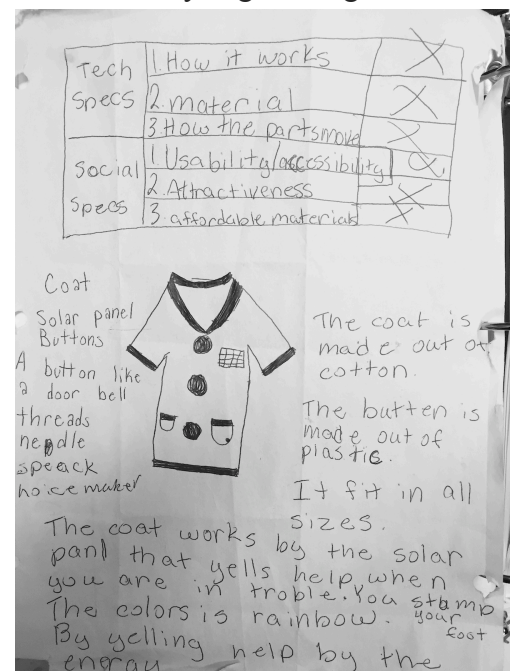 Tech Specs
1. How it works
2. material
3. How the parts move
Social Specs
1. Usability/accessibility
2. Attractiveness
3. affordable materials
Coat
Solar panel
Buttons
A button like
a door bell
threads
nedle
speack
noicemaker
The coat is
made out of
cotton.
The butten is
made out of
plastic.
It fit in all
sizes.
The coat works by the solar
panl that yells help when
you are in troble. You stomp
your
foot
The colors is rainbow.
By yelling help by the
energy